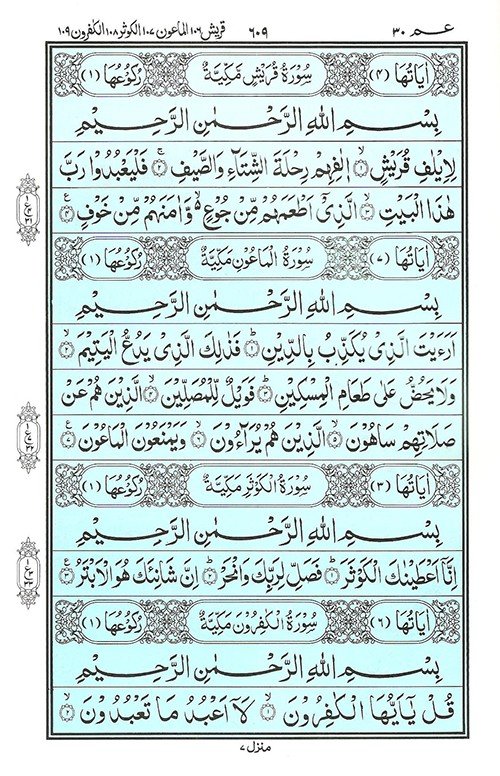 عـم ۳۰ ۶۰۹ قريش ۱۰۶ الماعون ۱۰۷ الكوثر ۱۰۸ الكفرون ۱۰۹
اٰيَاتُهَا (۴) سُوْرَةُ قُرَيْشٍ مَكِّيَّةٌ رُكُوْعُهَا (۱)
بِسْمِ اللهِ الرَّحْمٰنِ الرَّحِيْمِ
لِاِيْلٰفِ قُرَيْشٍ ۙ۱ اٖلٰفِهِمْ رِحْلَةَ الشِّتَآءِ وَالصَّيْفِ ۚ۲ فَلْيَعْبُدُوْا رَبَّ
هٰذَا الْبَيْتِ ۙ۳ الَّذِيْٓ اَطْعَمَهُمْ مِّنْ جُوْعٍ ۙ وَّاٰمَنَهُمْ مِّنْ خَوْفٍ ۴
ع ۱ ۳۱
اٰيَاتُهَا (۷) سُوْرَةُ الْمَاعُوْنِ مَكِّيَّةٌ رُكُوْعُهَا (۱)
بِسْمِ اللهِ الرَّحْمٰنِ الرَّحِيْمِ
اَرَءَيْتَ الَّذِيْ يُكَذِّبُ بِالدِّيْنِ ؕ۱ فَذٰلِكَ الَّذِيْ يَدُعُّ الْيَتِيْمَ ۙ۲
وَلَا يَحُضُّ عَلٰى طَعَامِ الْمِسْكِيْنِ ؕ۳ فَوَيْلٌ لِّلْمُصَلِّيْنَ ۙ۴ الَّذِيْنَ هُمْ عَنْ
صَلَاتِهِمْ سَاهُوْنَ ۙ۵ الَّذِيْنَ هُمْ يُرَآءُوْنَ ۙ۶ وَيَمْنَعُوْنَ الْمَاعُوْنَ ۷
ع ۱ ۳۲
اٰيَاتُهَا (۳) سُوْرَةُ الْكَوْثَرِ مَكِّيَّةٌ رُكُوْعُهَا (۱)
بِسْمِ اللهِ الرَّحْمٰنِ الرَّحِيْمِ
اِنَّآ اَعْطَيْنٰكَ الْكَوْثَرَ ؕ۱ فَصَلِّ لِرَبِّكَ وَانْحَرْ ؕ۲ اِنَّ شَانِئَكَ هُوَ الْاَبْتَرُ ۳
ع ۱ ۳۳
اٰيَاتُهَا (۶) سُوْرَةُ الْكٰفِرُوْنَ مَكِّيَّةٌ رُكُوْعُهَا (۱)
بِسْمِ اللهِ الرَّحْمٰنِ الرَّحِيْمِ
قُلْ يٰٓاَيُّهَا الْكٰفِرُوْنَ ۙ۱ لَآ اَعْبُدُ مَا تَعْبُدُوْنَ ۙ۲
منزل ۷